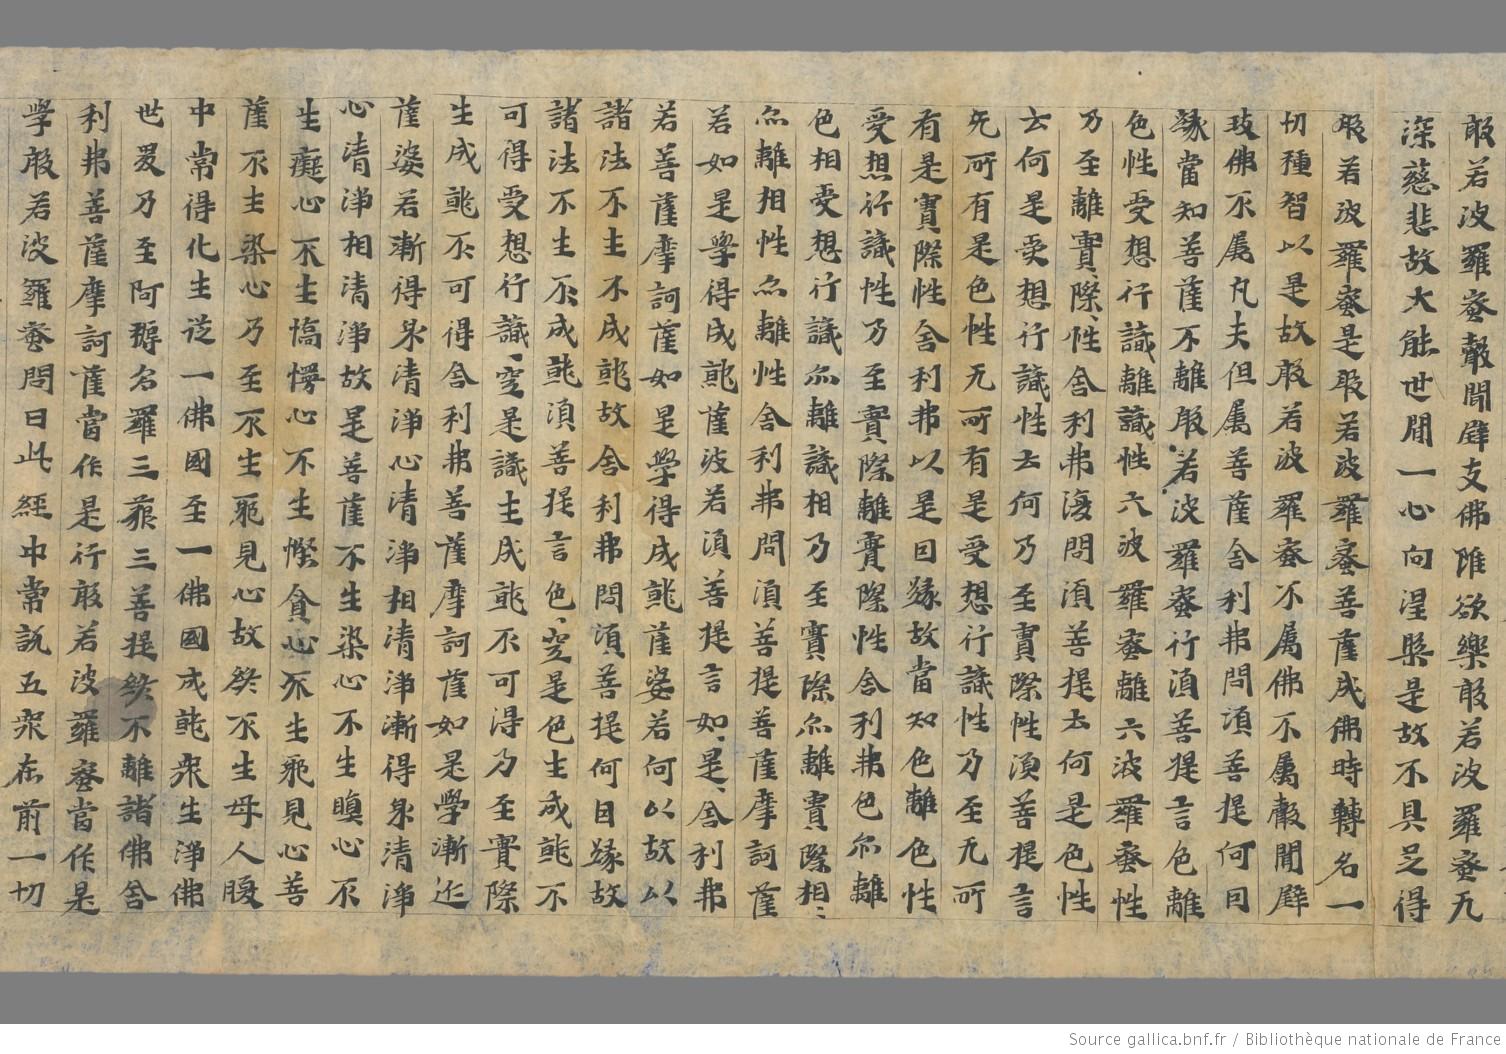 般若波羅蜜聲聞辟支佛唯欲樂般若波羅蜜无
深慈悲故大能世間一心向涅槃是故不具足得
般若波羅蜜是般若波羅蜜菩薩成佛時轉名一
切種智以是故般若波羅蜜不属佛不属聲聞辟
支佛不属凡夫但属菩薩舍利弗問湏菩提何因
縁當知菩薩不離般若波羅蜜行湏菩提言色離
色性受想行識離識性六波羅蜜離六波羅蜜性
乃至離實際性舍利弗復問湏菩提云何是色性
云何是受想行識性云何乃至實際性湏菩提言
无所有是色性无所有是受想行識性乃至无所
有是實際性舍利弗以是因縁故當知色離色性
受想行識性乃至實際離實際性舍利弗色亦離
色相受想行識亦離識相乃至實際亦離實際相〻
亦離相性亦離性舍利弗問湏菩提菩薩摩訶薩
若如是學得成就薩波若湏菩提言如是舍利弗
若菩薩摩訶薩如是學得成就薩婆若何以故以
諸法不生不成就故舍利弗問湏菩提何因縁故
諸法不生不成就湏菩提言色空是色生成就不
可得受想行識空是識生成就不可得乃至實際
生成就不可得舍利弗菩薩摩訶薩如是學漸近
薩婆若漸得身清淨心清淨相清淨漸得身清淨
心清淨相清淨故是菩薩不生染心不生瞋心不
生癡心不生憍慢心不生慳貪心不生邪見心菩
薩不生染心乃至不生邪見心故終不生母人腹
中常得化生從一佛國至一佛國成就衆生淨佛
世界乃至阿耨多羅三藐三菩提終不離諸佛舍
利弗菩薩摩訶薩當作是行般若波羅蜜當作是
學般若波羅蜜問曰此經中常說五衆在前一切
Source gallica.bnf.fr / Bibliothèque nationale de France